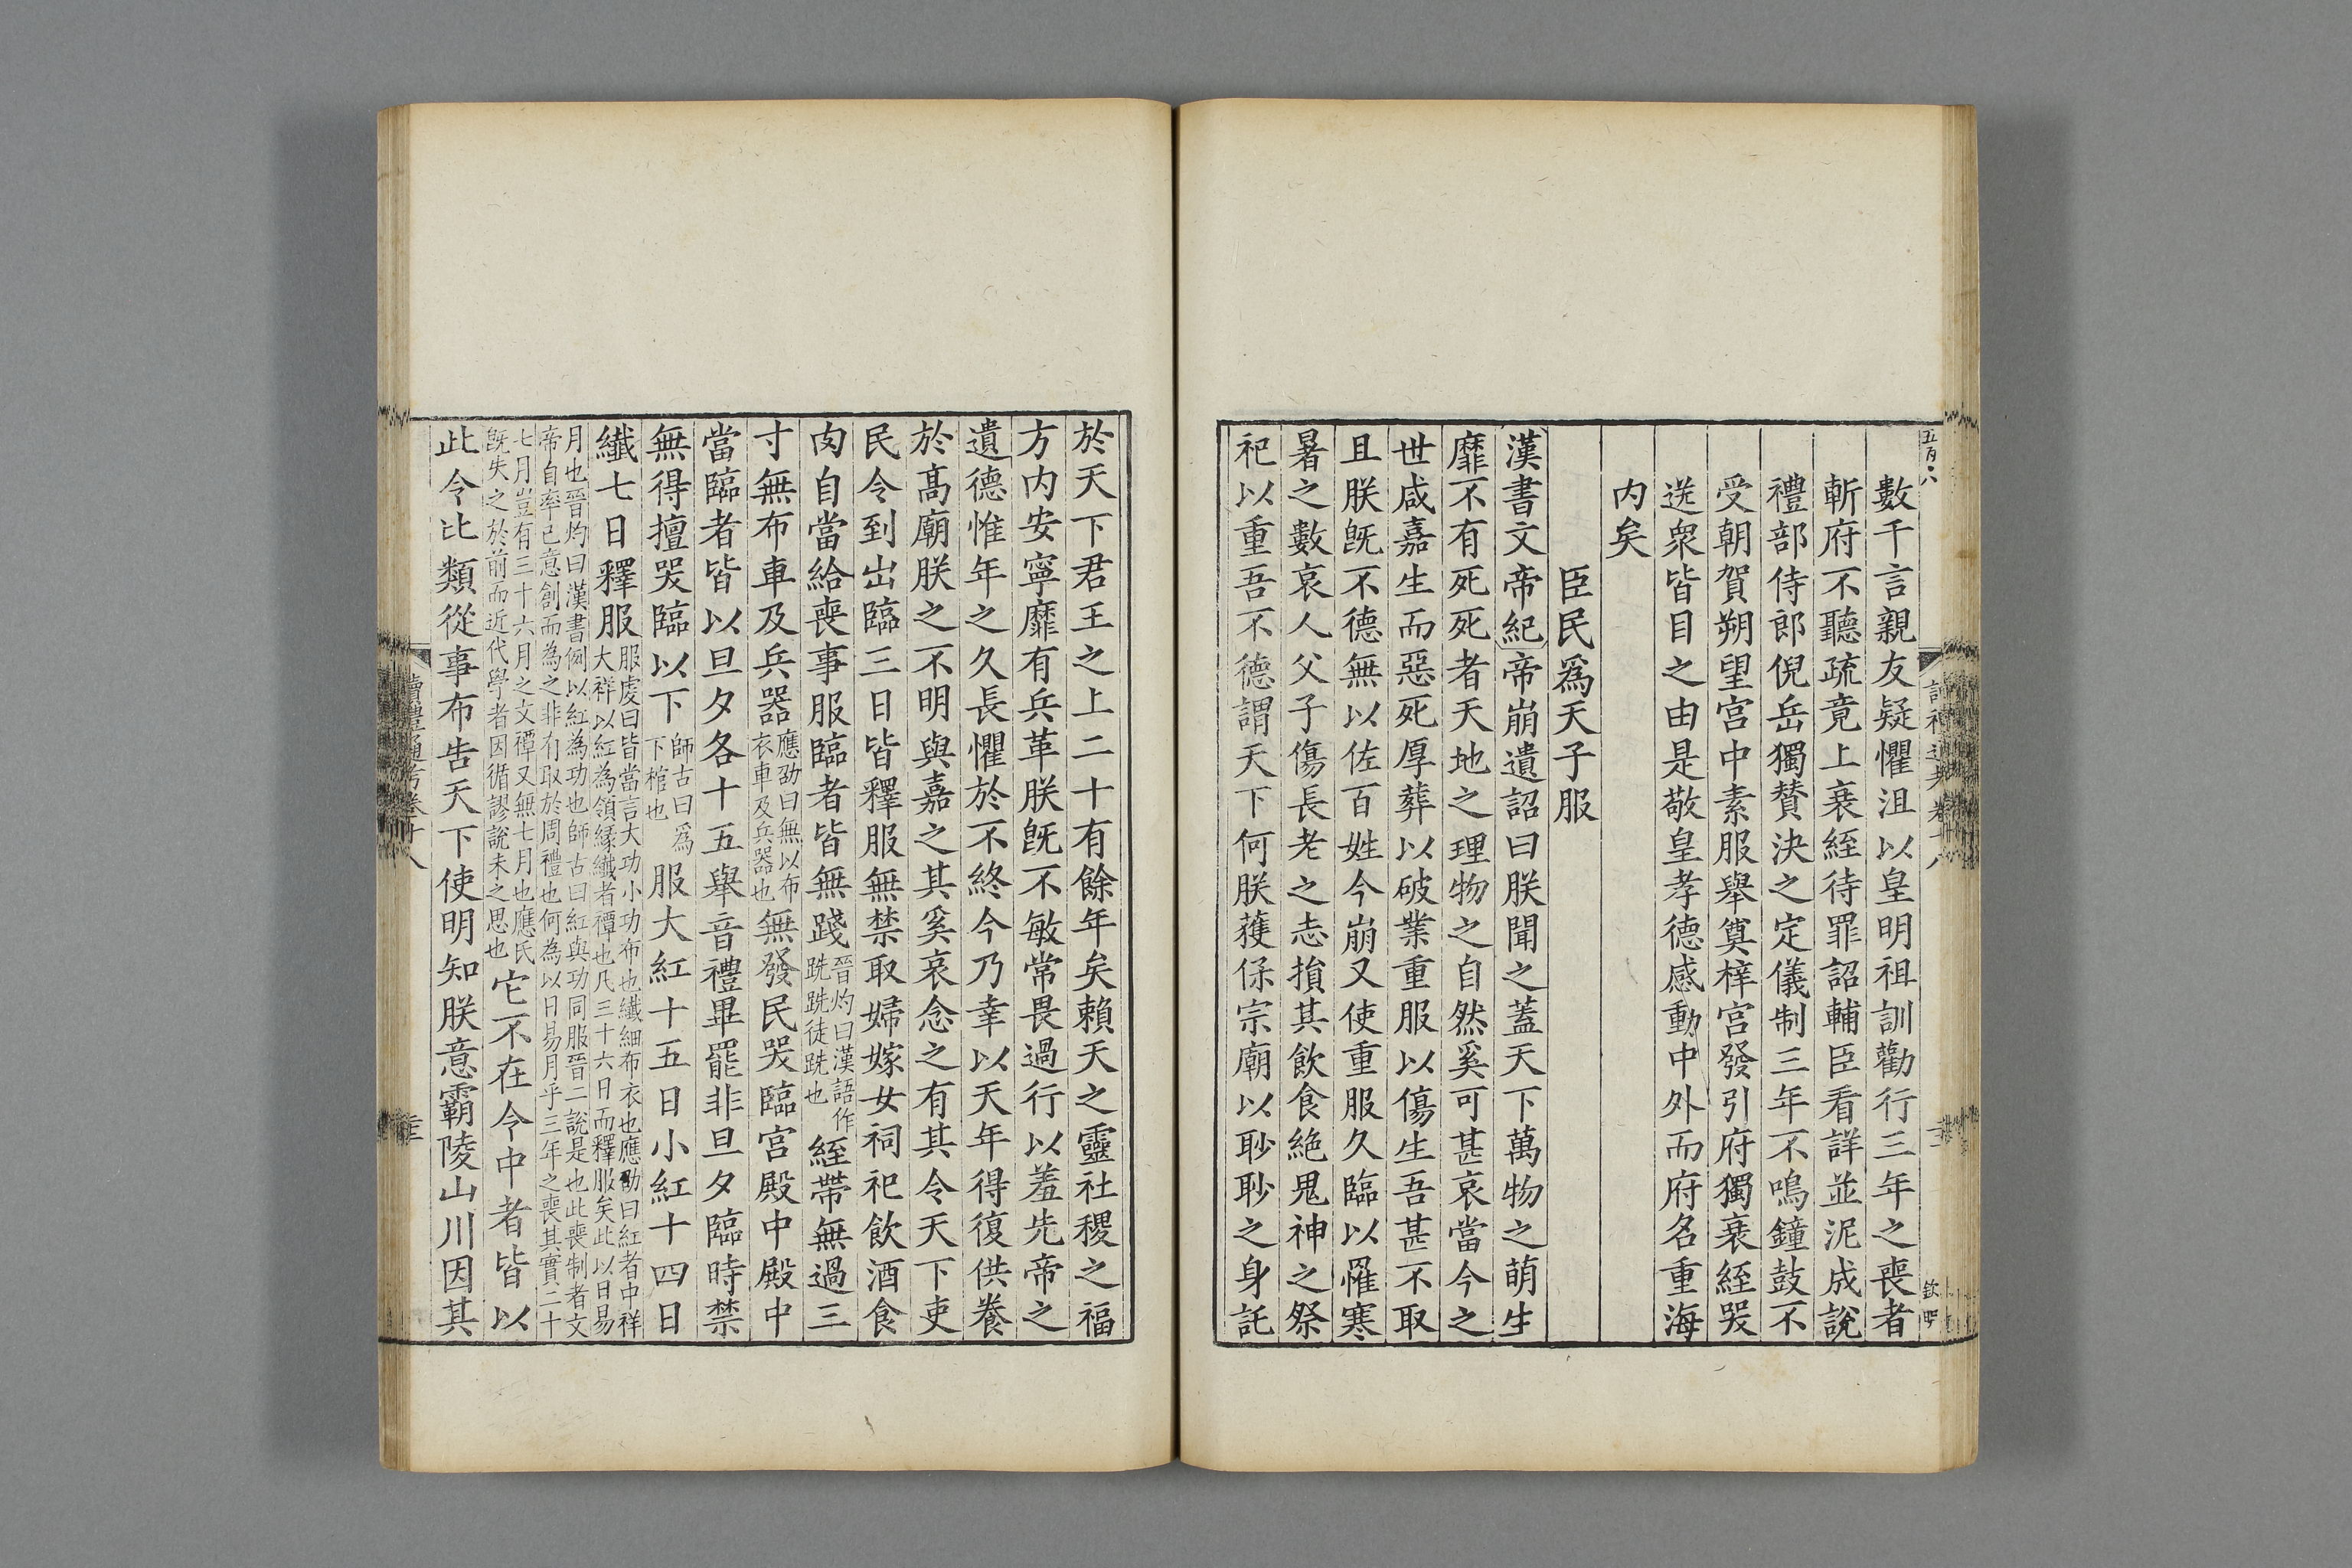 五百八
數千言親友疑懼沮以皇明祖訓勸行三年之喪者
斬府不聽疏竟上衰絰待罪詔輔臣看詳並泥成說
禮部侍郎倪岳獨贊決之定儀制三年不鳴鐘鼓不
受朝賀朔望宮中素服舉奠梓宮發引府獨衰絰哭
送衆皆目之由是敬皇孝德感動中外而府名重海
内矣
臣民爲天子服
漢書文帝紀帝崩遺詔曰朕聞之蓋天下萬物之萌生
靡不有死死者天地之理物之自然奚可甚哀當今之
世咸嘉生而惡死厚葬以破業重服以傷生吾甚不取
且朕旣不德無以佐百姓今崩又使重服久臨以罹寒
暑之數哀人父子傷長老之志損其飲食絶鬼神之祭
祀以重吾不德謂天下何朕獲保宗廟以眇眇之身託
於天下君王之上二十有餘年矣賴天之靈社稷之福
方内安寧靡有兵革朕旣不敏常畏過行以羞先帝之
遺德惟年之久長懼於不終今乃幸以天年得復供養
於髙廟朕之不明與嘉之其奚哀念之有其令天下吏
民令到出臨三日皆釋服無禁取婦嫁女祠祀飲酒食
肉自當給喪事服臨者皆無踐晉灼曰漢語作跣跣徒跣也絰帶無過三
寸無布車及兵器應劭曰無以布衣車及兵器也無發民哭臨宮殿中殿中
當臨者皆以旦夕各十五舉音禮畢罷非旦夕臨時禁
無得擅哭臨以下師古曰爲下棺也服大紅十五日小紅十四日
纎七日釋服服虔曰皆當言大功小功布也纎細布衣也應劭曰紅者中祥大祥以紅為領緣纎者禫也凡三十六日而釋服矣此以日易
月也晉灼曰漢書例以紅為功也師古曰紅與功同服晉二說是也此喪制者文帝自率己意創而為之非有取於周禮也何為以日易月乎三年之喪其實二十
七月豈有三十六月之文禫又無七月也應氏旣失之於前而近代學者因循謬說未之思也它不在令中者皆以
此令比類從事布告天下使明知朕意霸陵山川因其
讀禮通考卷十八